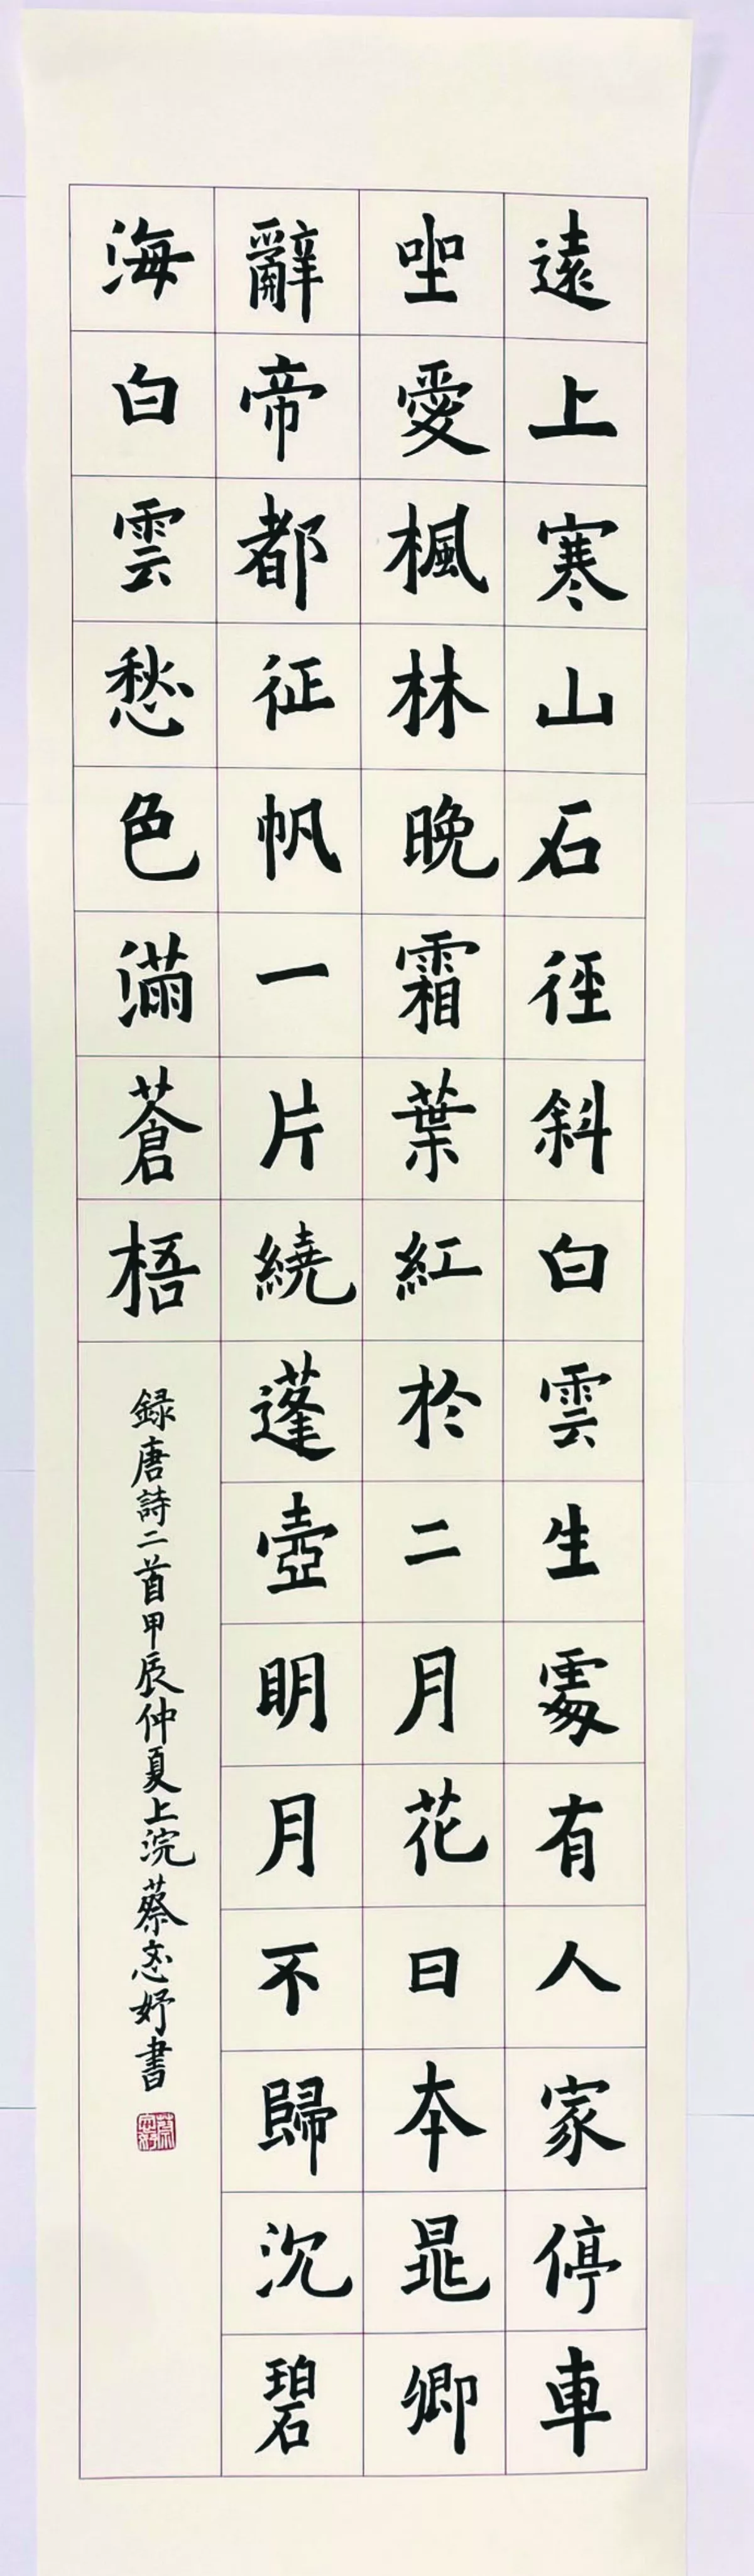 遠上寒山石徑斜白雲生處有人家停車
坐愛楓林晚霜葉紅於二月花日本晁卿
辭帝都征帆一片繞蓬壺明月不歸沉碧
海白雲愁色滿蒼梧
録唐詩二首甲辰仲夏上浣蔡妤書